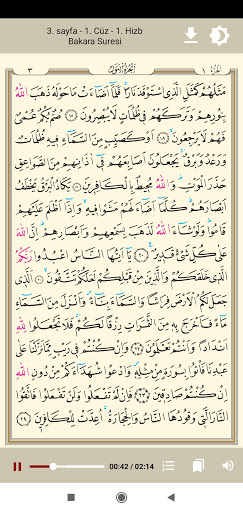 3. sayfa - 1. Cüz - 1. Hizb
Bakara Suresi
الجزء ١ الجزء الاول ٣
مَثَلُهُمْ كَمَثَلِ الَّذِي اسْتَوْقَدَ نَارًا فَلَمَّا اَضَاءَتْ مَا حَوْلَهُ ذَهَبَ اللهُ
بِنُورِهِمْ وَتَرَكَهُمْ فِي ظُلُمَاتٍ لَا يُبْصِرُونَ ﴿١٧﴾ صُمٌّ بُكْمٌ عُمْيٌ
فَهُمْ لَا يَرْجِعُونَ ﴿١٨﴾ اَوْ كَصَيِّبٍ مِنَ السَّمَاءِ فِيهِ ظُلُمَاتٌ
وَرَعْدٌ وَبَرْقٌ يَجْعَلُونَ اَصَابِعَهُمْ فِي اٰذَانِهِمْ مِنَ الصَّوَاعِقِ
حَذَرَ الْمَوْتِ وَاللهُ مُحِيطٌ بِالْكَافِرِينَ ﴿١٩﴾ يَكَادُ الْبَرْقُ يَخْطَفُ
اَبْصَارَهُمْ كُلَّمَا اَضَاءَ لَهُمْ مَشَوْا فِيهِ وَاِذَا اَظْلَمَ عَلَيْهِمْ
قَامُوا وَلَوْ شَاءَ اللهُ لَذَهَبَ بِسَمْعِهِمْ وَاَبْصَارِهِمْ اِنَّ اللهَ
عَلٰى كُلِّ شَيْءٍ قَدِيرٌ ﴿٢٠﴾ يَا اَيُّهَا النَّاسُ اعْبُدُوا رَبَّكُمُ
الَّذِي خَلَقَكُمْ وَالَّذِينَ مِنْ قَبْلِكُمْ لَعَلَّكُمْ تَتَّقُونَ ﴿٢١﴾ الَّذِي
جَعَلَ لَكُمُ الْاَرْضَ فِرَاشًا وَالسَّمَاءَ بِنَاءً وَاَنْزَلَ مِنَ السَّمَاءِ
مَاءً فَاَخْرَجَ بِهِ مِنَ الثَّمَرَاتِ رِزْقًا لَكُمْ فَلَا تَجْعَلُوا لِلهِ
اَنْدَادًا وَاَنْتُمْ تَعْلَمُونَ ﴿٢٢﴾ وَاِنْ كُنْتُمْ فِي رَيْبٍ مِمَّا نَزَّلْنَا عَلٰى
عَبْدِنَا فَأْتُوا بِسُورَةٍ مِنْ مِثْلِهِ وَادْعُوا شُهَدَاءَكُمْ مِنْ دُونِ اللهِ
اِنْ كُنْتُمْ صَادِقِينَ ﴿٢٣﴾ فَاِنْ لَمْ تَفْعَلُوا وَلَنْ تَفْعَلُوا فَاتَّقُوا
النَّارَ الَّتِي وَقُودُهَا النَّاسُ وَالْحِجَارَةُ اُعِدَّتْ لِلْكَافِرِينَ ﴿٢٤﴾
00:42 / 02:14